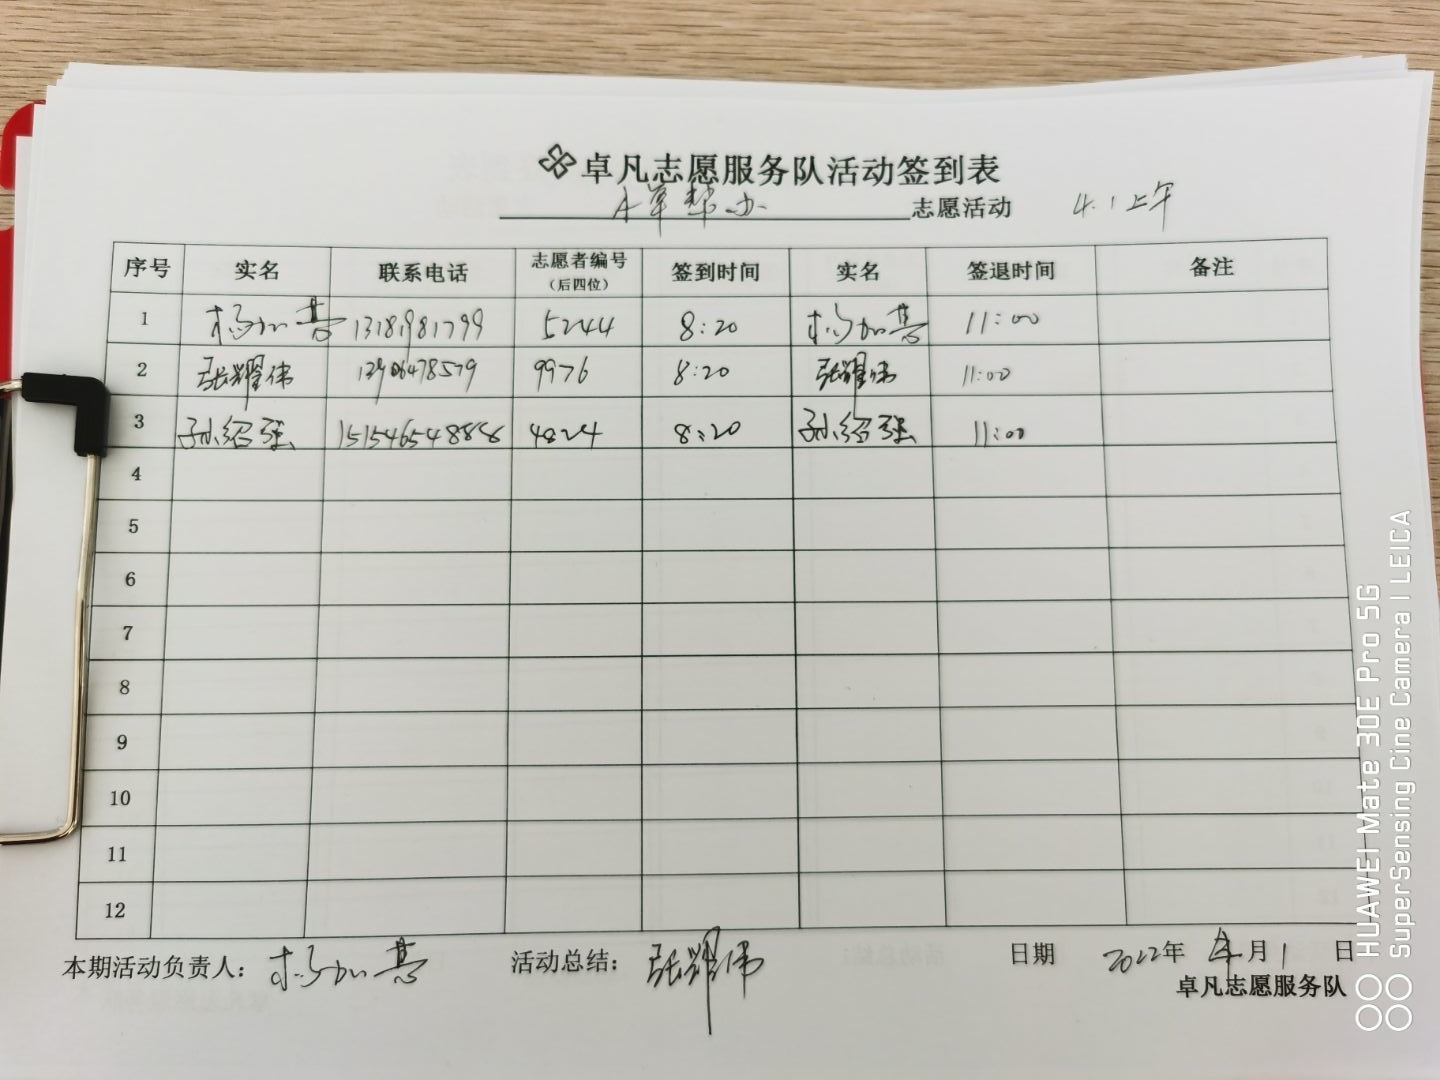 卓凡志愿服务队活动签到表
志愿活动 4.1上午
序号 实名 联系电话 志愿者编号（后四位） 签到时间 实名 签退时间 备注
1 杨加喜 13181981799 5244 8:20 杨加喜 11:00
2 张耀伟 13906478579 9976 8:20 张耀伟 11:00
3 孙绍强 15154654888 4824 8:20 孙绍强 11:00
4
5
6
7
8
9
10
11
12
本期活动负责人： 杨加喜 活动总结： 张耀伟 日期 2022年 4月1日
卓凡志愿服务队
HUAWEI Mate 30E Pro 5G
SuperSensing Cine Camera | LEICA